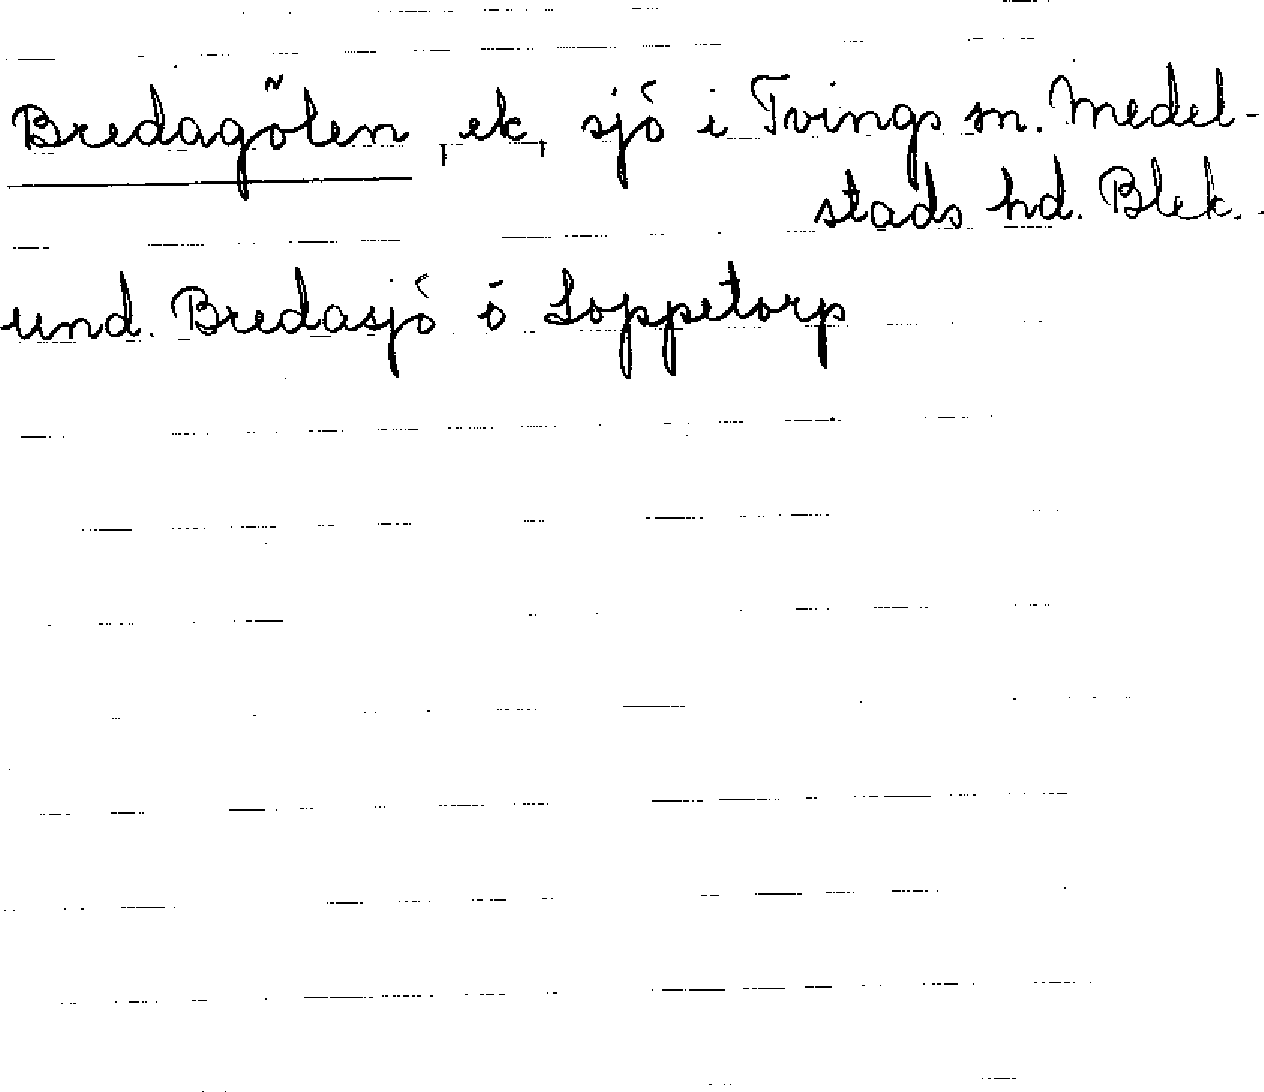 Bredagölen, ek, sjö i Tvings sn. Medel-
stads hd. Blek.
und. Bredasjö o Loppetorp